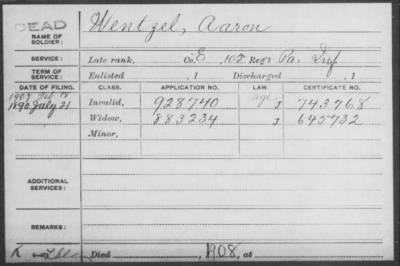 DEAD
NAME OF SOLDIER: Wentzel, Aaron
SERVICE: Late rank, Co. E, 102 Reg't Pa. Inf
TERM OF SERVICE: Enlisted , 1 Discharged , 1
DATE OF FILING. CLASS. APPLICATION NO. LAW. CERTIFICATE NO.
1907
1890 July 21 Invalid, 928740 J 743768
Widow, 883234 J 645732
Minor,
ADDITIONAL SERVICES:
REMARKS:
Died , 1908, at